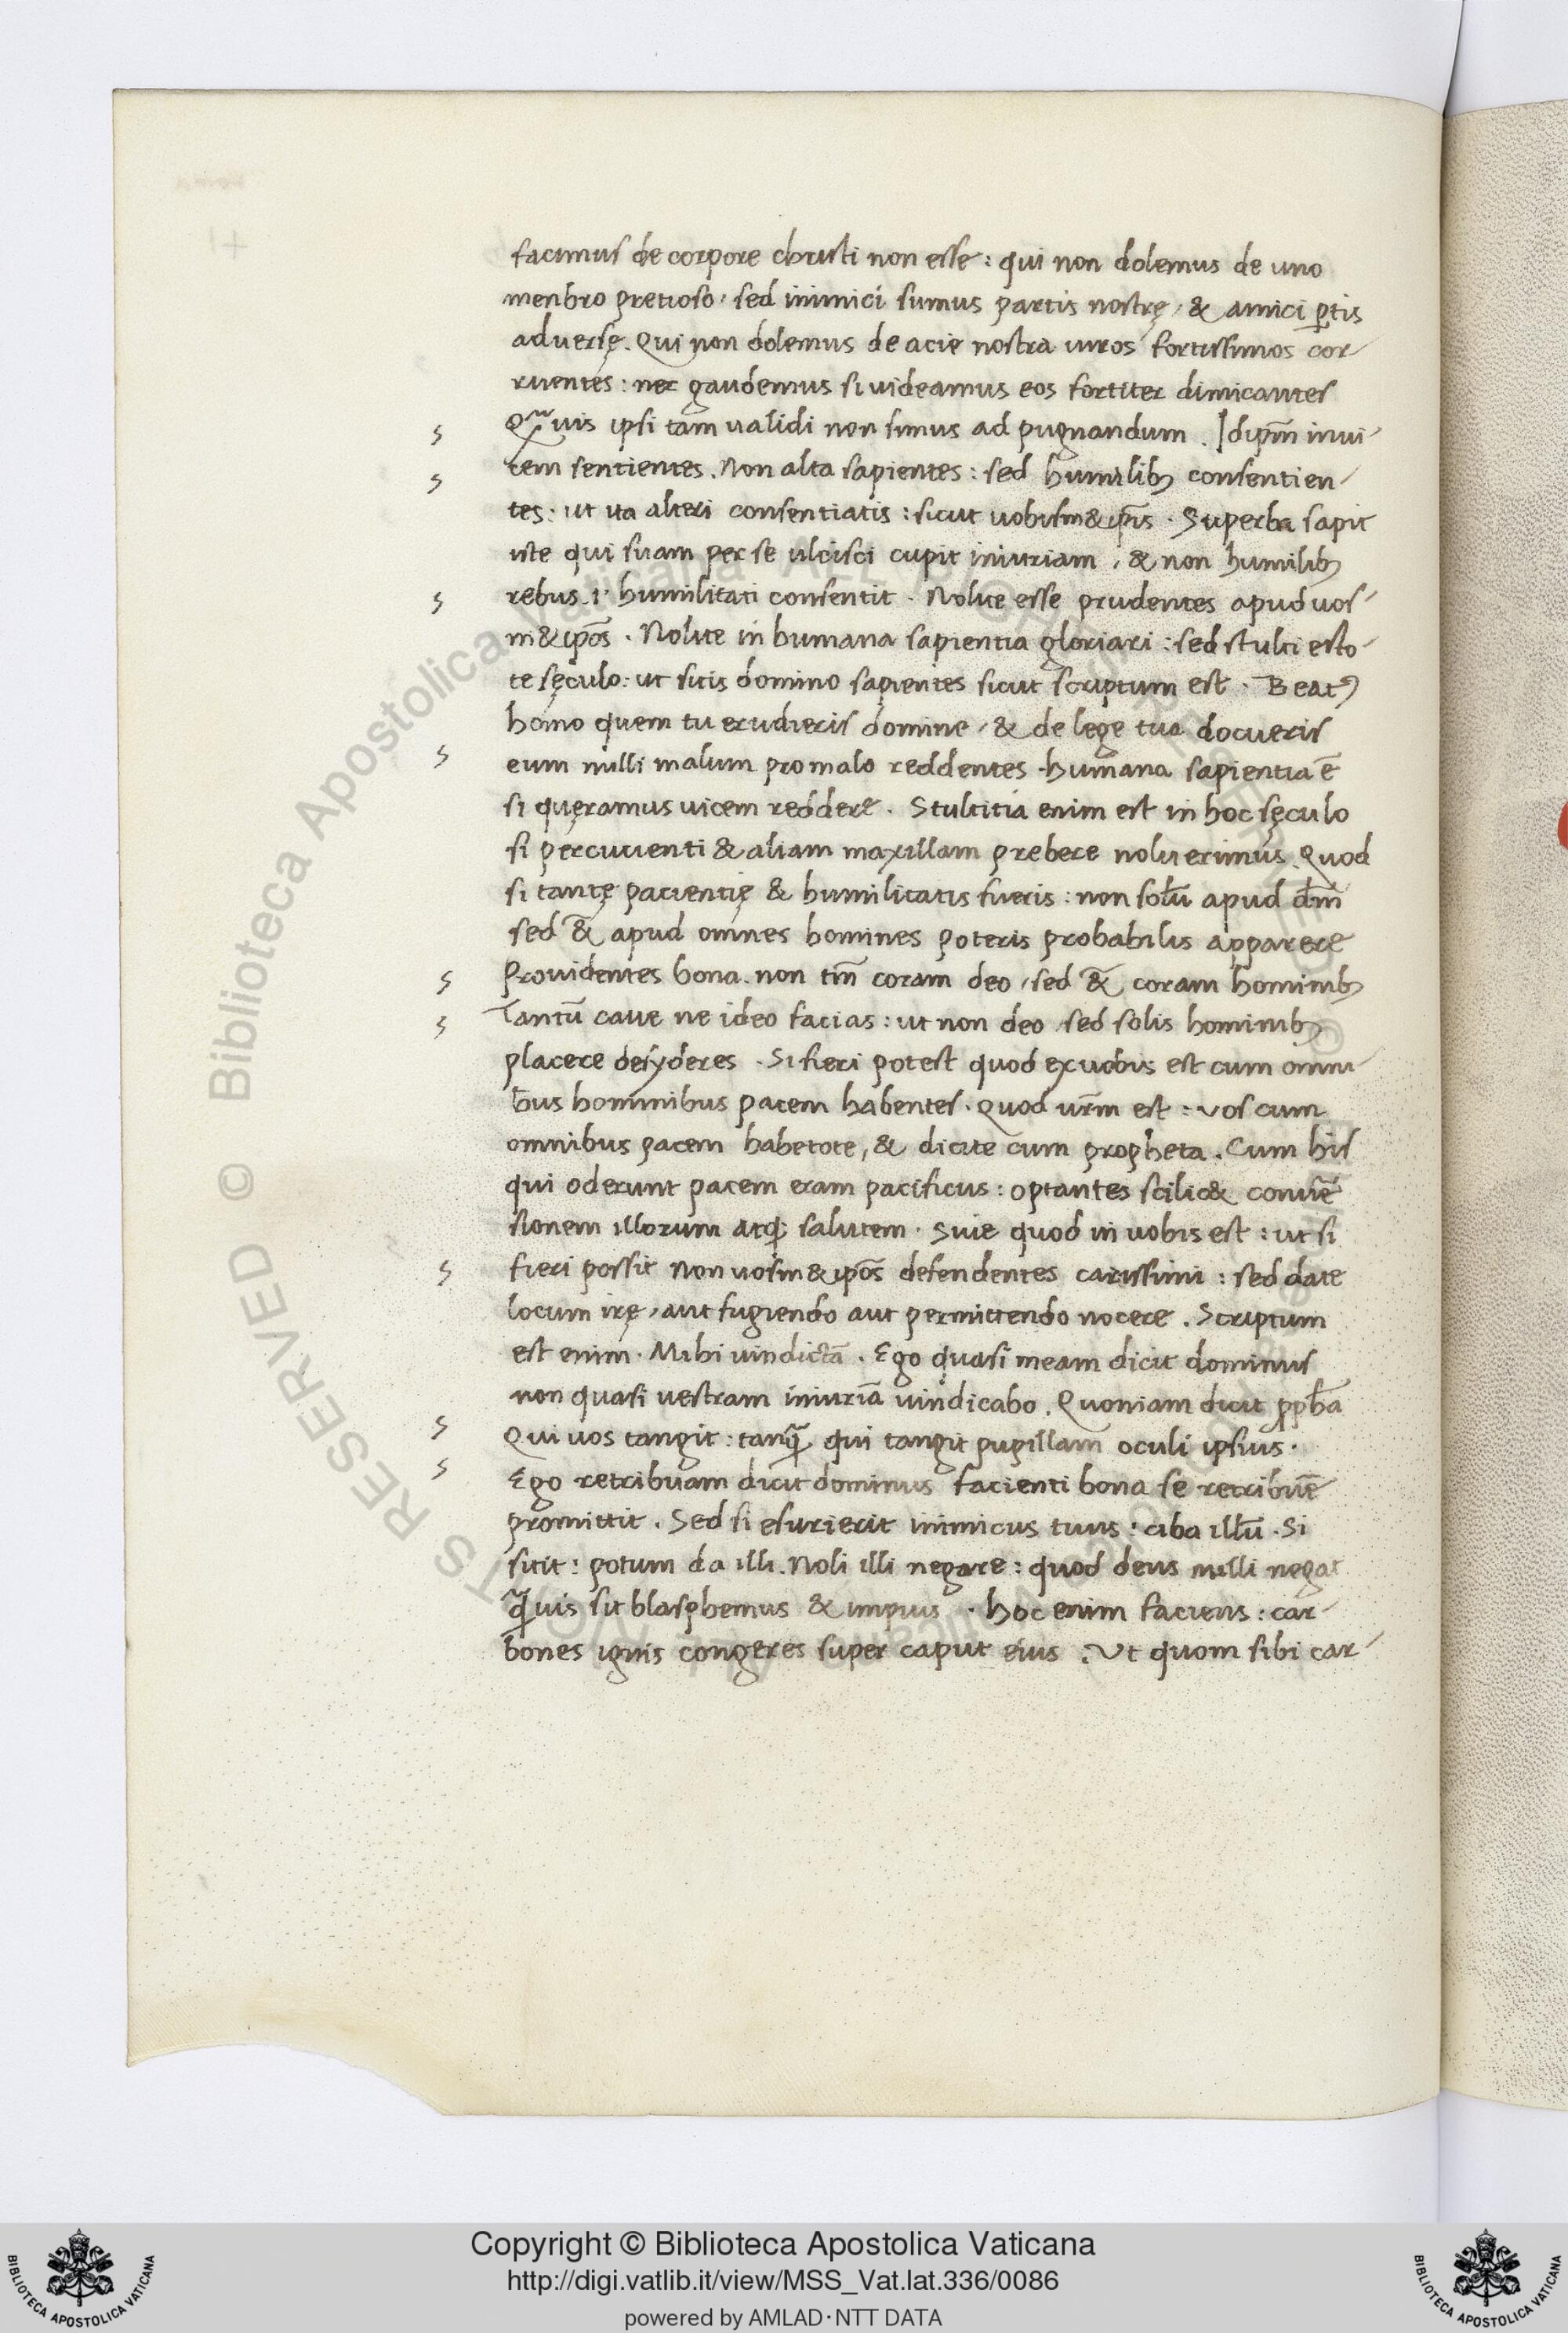 facimus de corpore christi non esse: qui non dolemus de uno
menbro pretioso, sed inimici sumus partis nostrę, & amici ꝑtis
adversę. Qui non dolemus de acie nostra viros fortissimos cor-
ruentes: nec gaudemus si videamus eos fortiter dimicantes
Qͣuis ipsi tam validi non simus ad pugnandum. Idip̄m invi-
cem sentientes. Non alta sapientes: sed humilibꝫ consentien-
tes: ut ita alteri consentiatis: sicut vobism&ip̄is. Superba sapit
iste qui suam per se ulcisci cupit iniuriam, & non humilibꝫ
rebus .i. humilitati consentit. Nolite esse prudentes apud vos-
m&ip̄os. Nolite in humana sapientia gloriari: sed stulti esto-
te sęculo: ut sitis domino sapientes sicut scriptum est. Beatꝰ
homo quem tu erudieris domine, & de lege tua docueris
eum nulli malum pro malo reddentes. humana sapientia ē
si quęramus vicem reddere. Stultitia enim est in hoc sęculo
si percutienti & aliam maxillam prebere noluerimus. Quod
si tantę pacientię & humilitatis fueris: non solū apud dm̄
sed &̄ apud omnes homines poteris probabilis apparere
Providentes bona. non tm̄ coram deo, sed &̄ coram hominibꝫ
Tantū cave ne ideo facias: ut non deo sed solis hominibꝫ
placere desyderes. Si fieri potest quod ex vobis est cum omni-
bus hominibus pacem habentes. Quod vr̄m est: vos cum
omnibus pacem habetote, & dicite cum propheta. Cum his
qui oderunt pacem eram pacificus: optantes scilic& convē
sionem illorum atqꝫ salutem. Sive quod in vobis est: ut si
fieri possit non vosm&ip̄os defendentes carissimi: sed date
locum irę, aut fugiendo aut permittendo nocere. Scriptum
est enim. Mihi vindictā. Ego quasi meam dicit dominus
non quasi vestram iniuriā vindicabo. Quoniam dicit ꝓpħa
Qui vos tangit: tanqͣ qui tangit pupillam oculi ipsius.
Ego retribuam dicit dominus facienti bona se retribuē
promittit. Sed si esurierit inimicus tuus: ciba illū. Si
sitit: potum da illi. Noli illi negare: quod deus nulli negat
qͣuis sit blasphemus & impius. hoc enim faciens: car-
bones ignis congeres super caput eius. Ut quom sibi car-
Copyright © Biblioteca Apostolica Vaticana
http://digi.vatlib.it/view/MSS_Vat.lat.336/0086
powered by AMLAD·NTT DATA